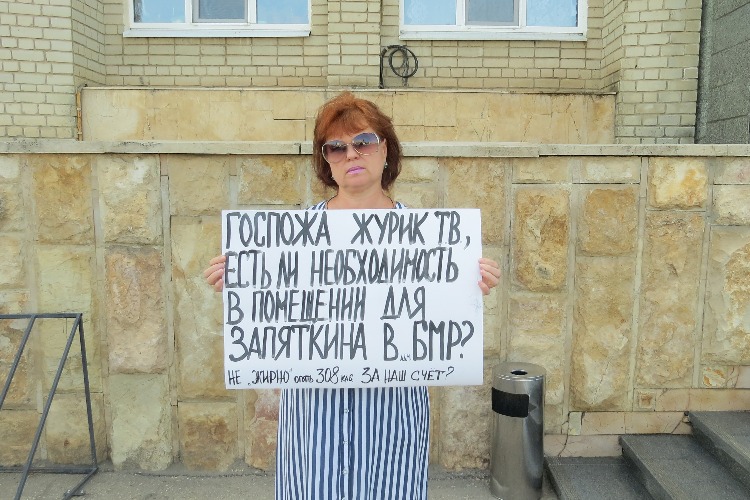 ГОСПОЖА ЖУРИК ТВ,
ЕСТЬ ЛИ НЕОБХОДИМОСТЬ
В ПОМЕЩЕНИИ ДЛЯ
ЗАПЯТКИНА В БМР?
НЕ „ЖИРНО" 308 КАБ ЗА НАШ СЧЕТ?